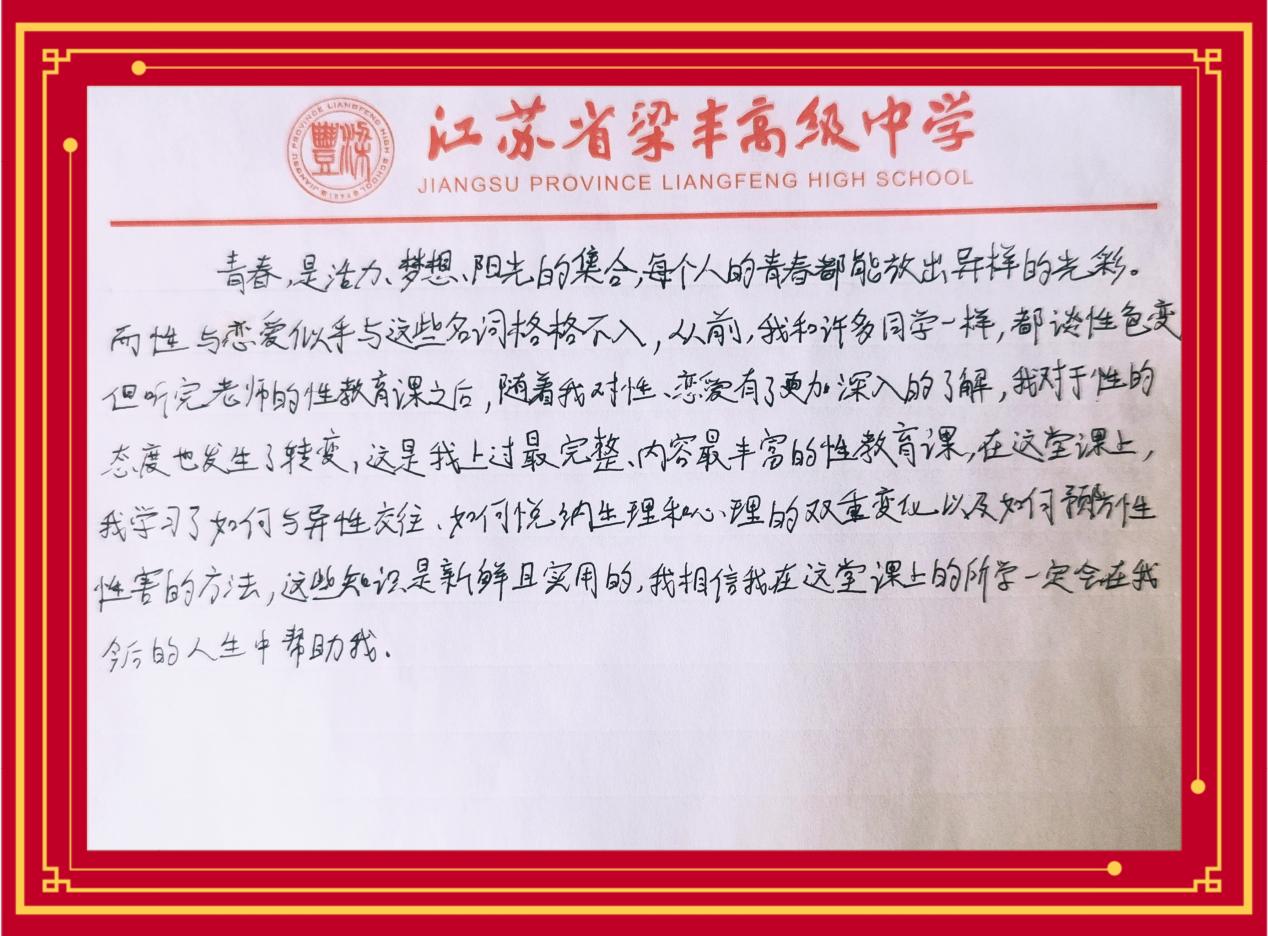 江苏省梁丰高级中学
JIANGSU PROVINCE LIANGFENG HIGH SCHOOL
JIANGSU PROVINCE LIANGFENG HIGH SCHOOL
梁豐
青春,是活力、梦想、阳光的集合,每个人的青春都能放出异样的光彩。
而性与恋爱似乎与这些名词格格不入,从前,我和许多同学一样,都谈性色变
但听完老师的性教育课之后,随着我对性、恋爱有了更加深入的了解,我对于性的
态度也发生了转变,这是我上过最完整、内容最丰富的性教育课,在这堂课上,
我学习了如何与异性交往、如何悦纳生理和心理的双重变化以及如何预防性
性害的方法,这些知识是新鲜且实用的,我相信我在这堂课上的所学一定会在我
今后的人生中帮助我.